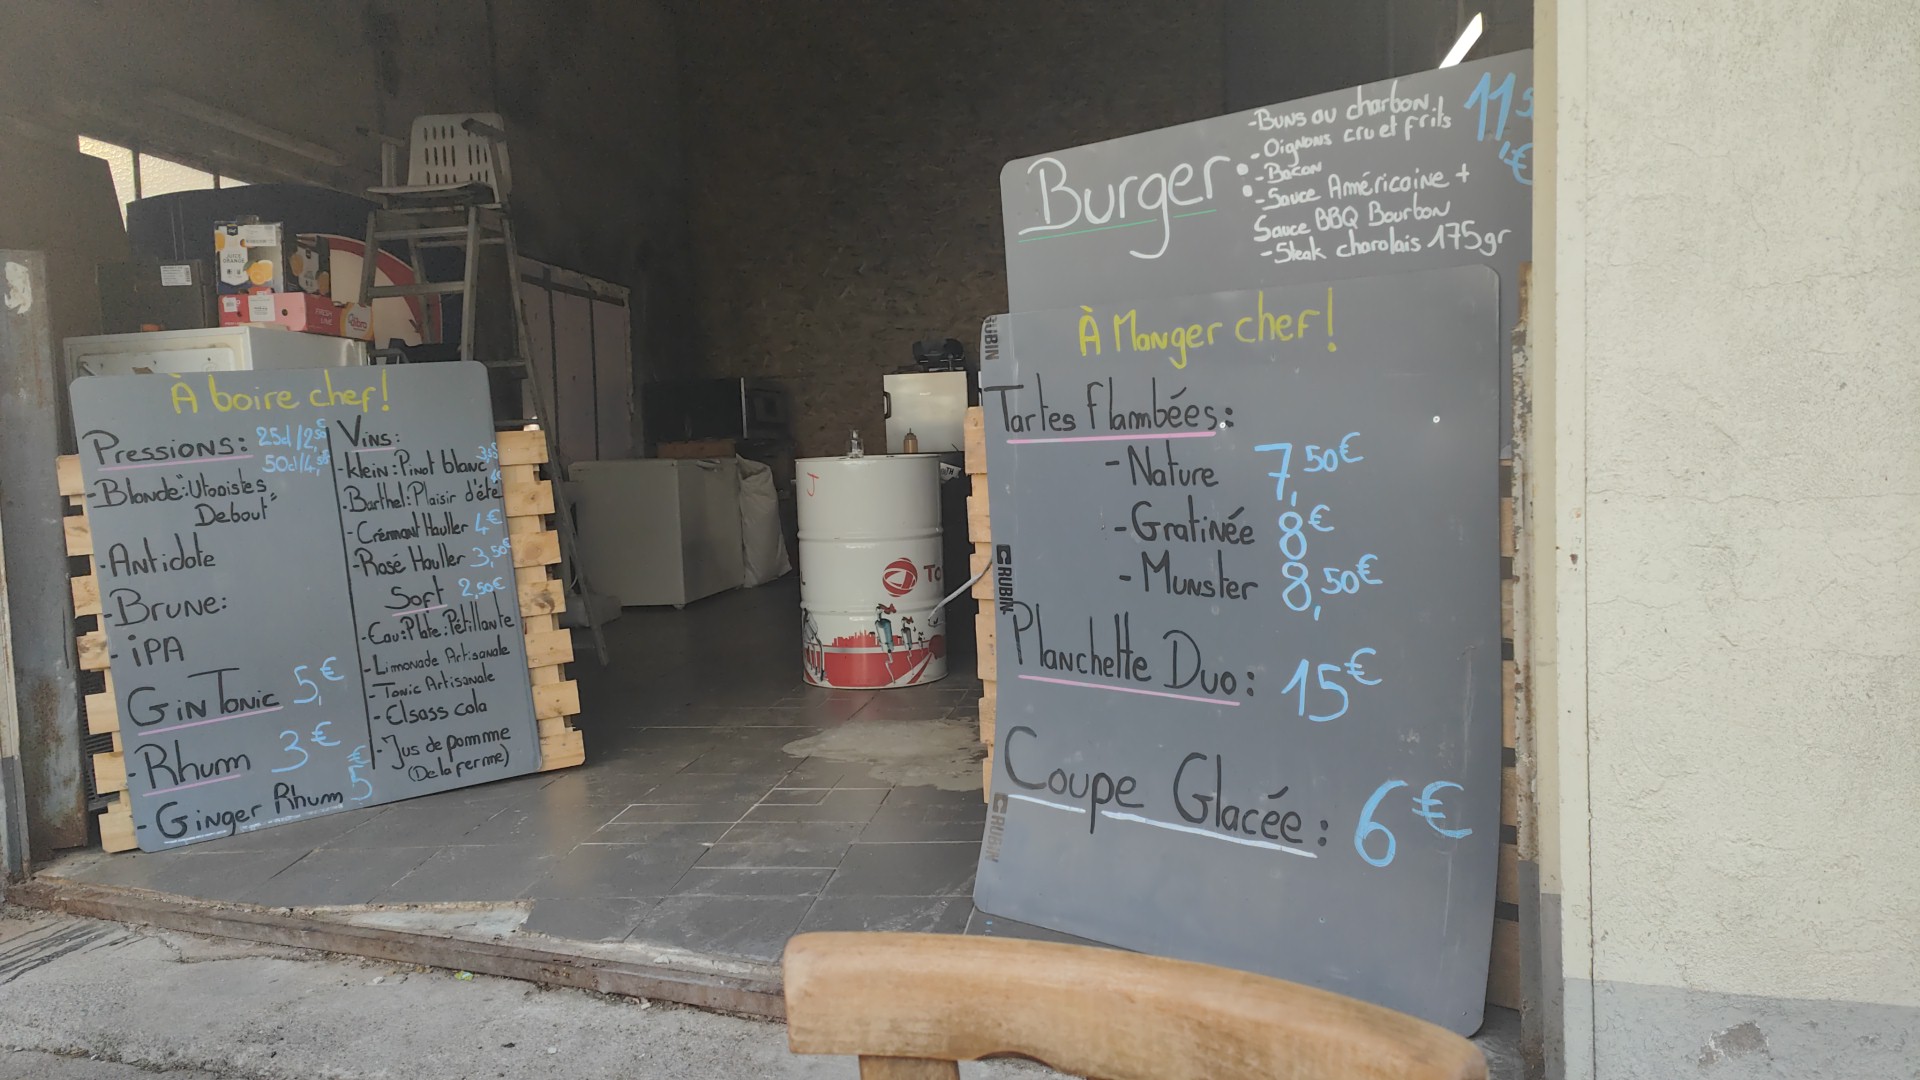 À boire chef!
Pressions: 25cl/2,50€
50cl/4,50€
-Blonde:"Utopistes
Debout"
-Antidote
-Brune:
-iPA
Gin Tonic 5,€
-Rhum 3€
-Ginger Rhum 5€
Vins:
-Klein:Pinot blanc
-Barthel:Plaisir d'été
-Crémant Hauller 4€
-Rosé Hauller 3,50€
Soft 2,50€
-Eau:Plate:Pétillante
-Limonade Artisanale
-Tonic Artisanale
-Elsass cola
-Jus de pomme
(De la ferme)
JUS D'ORANGE
J
TO
Burger:
-Buns au charbon
-Oignons cru et frits
-Bacon
-Sauce Américaine +
Sauce BBQ Bourbon
-Steak charolais 175gr
11,5€
À Manger chef!
Tartes flambées:
-Nature 7,50€
-Gratinée 8€
-Munster 8,50€
Planchette Duo: 15€
Coupe Glacée: 6€
RUBIN
CRUBIN
CRUBIN